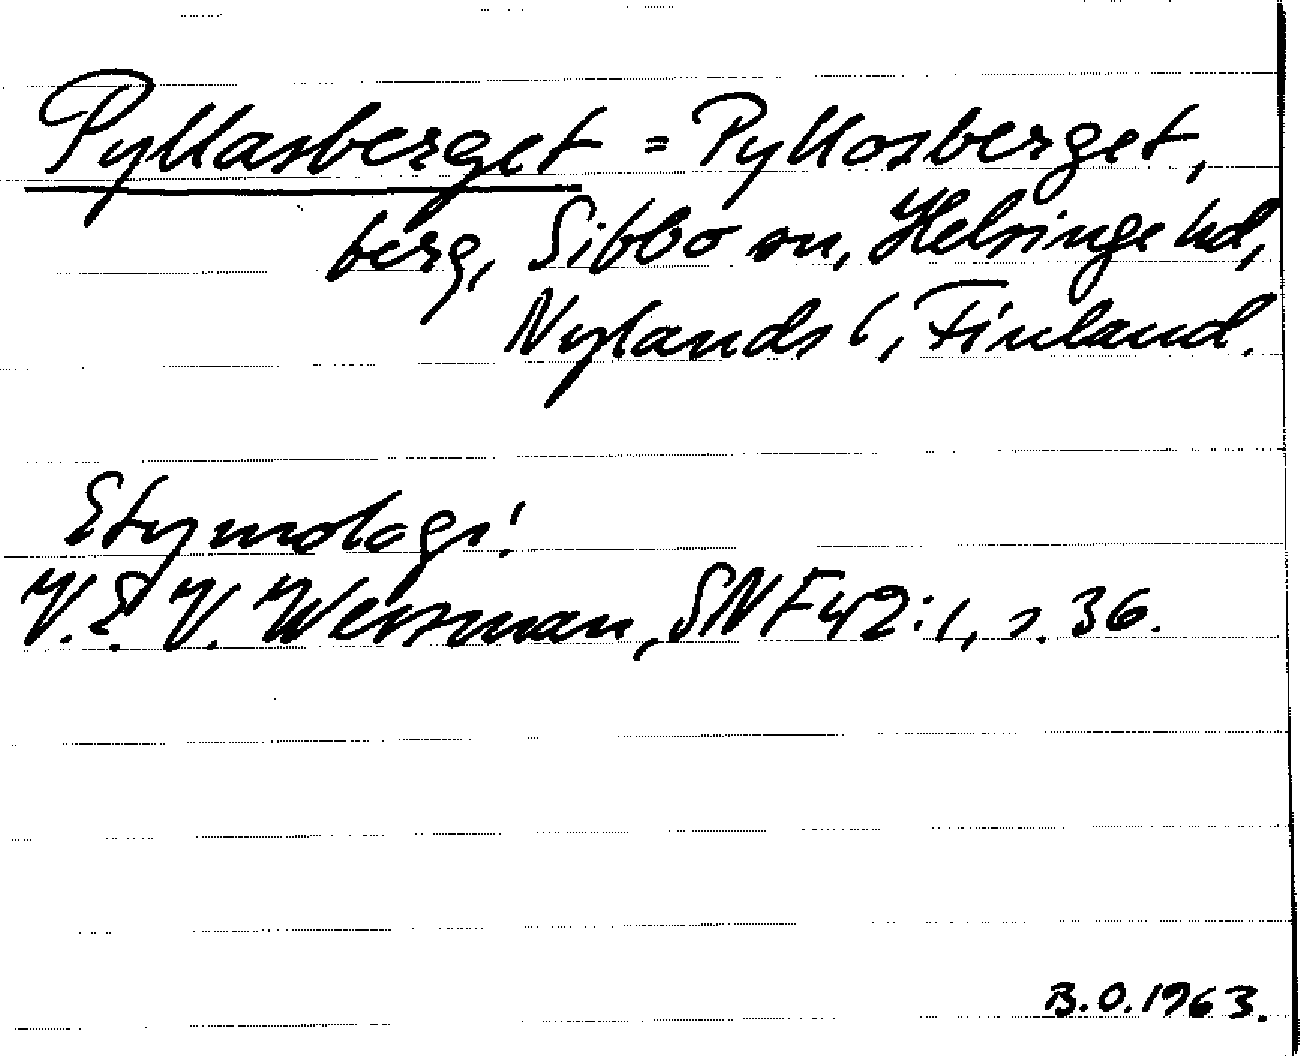 Pyllasberget = Pyllosberget,
berg, Sibbo sn, Helsinge hd,
Nylands l, Finland.
Etymologi!
V.E.V. Wessman, SNF 42:1, s. 36.
B.O. 1963.